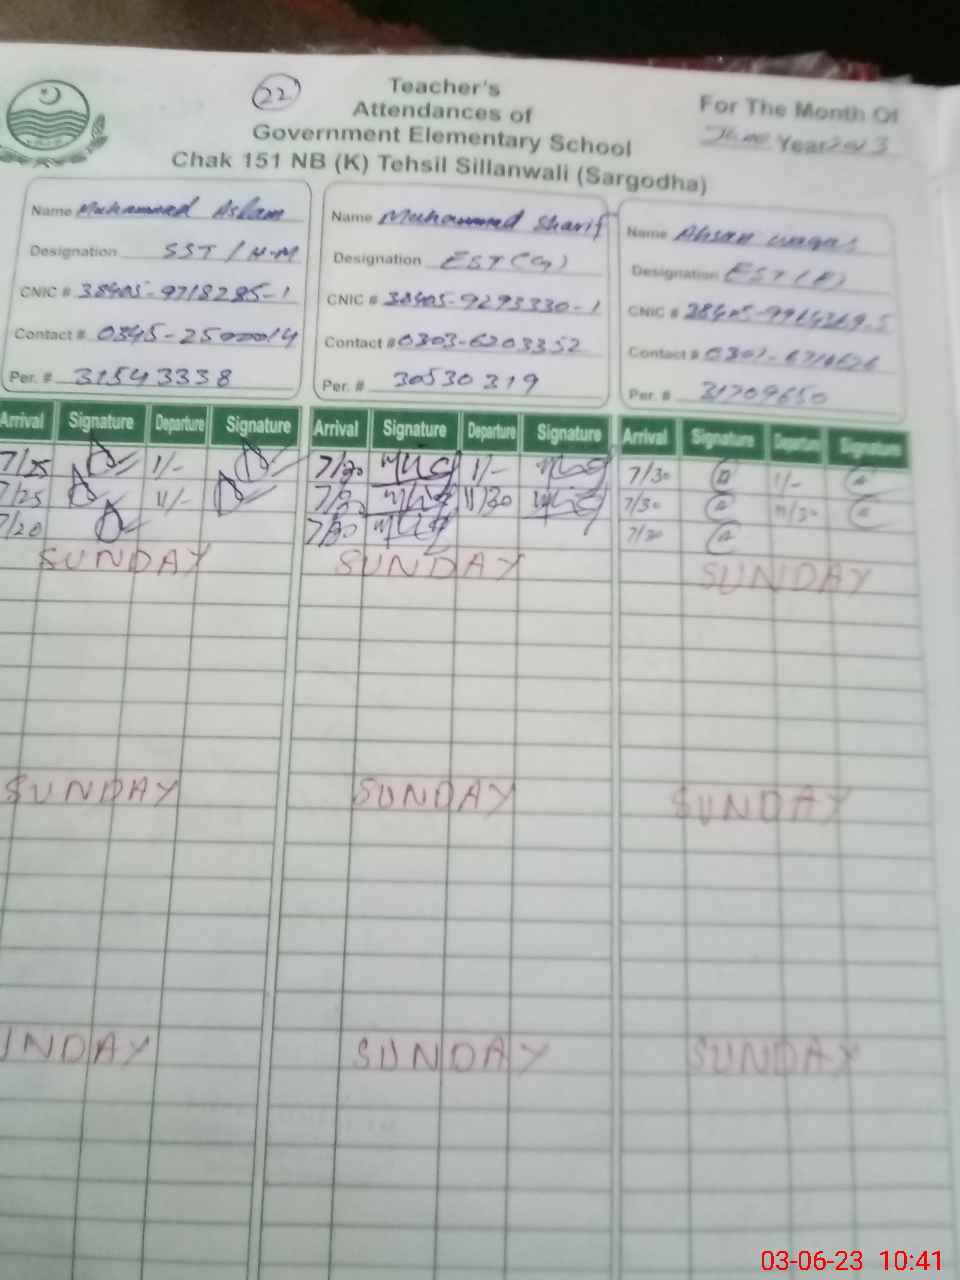 22
Teacher's
Attendances of
Government Elementary School
Chak 151 NB (K) Tehsil Sillanwali (Sargodha)
For The Month Of
June Year 2023
Name Muhammad Aslam
Designation SST / H-M
CNIC # 38405-9718285-1
Contact # 0345-
Per. # 31543338
Name Muhammad Sharif
Designation EST (G)
CNIC # 38405-9293330-1
Contact # 0303-6203352
Per. # 30530319
Name Ahsan Waqas
Designation EST
CNIC # 38405-
Contact #
Per. # 31709650
Arrival Signature Departure Signature Arrival Signature Departure Signature Arrival Signature Departure Signature
7/25 1/- 7/30 1/- 7/30 1/-
7/25 11/- 7/30 11/30 7/30 11/30
7/20 7/30 7/30
SUNDAY SUNDAY SUNDAY
SUNDAY SUNDAY SUNDAY
UNDAY SUNDAY SUNDAY
03-06-23 10:41